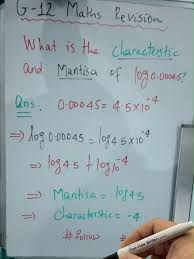 G-12 Maths Revision
What is the Characterstic
and Mantisa of log0.00045?
Ans: 0.00045 = 4.5x10⁻⁴
⇒ log0.00045 = log4.5x10⁻⁴
⇒ log4.5 + log10⁻⁴
⇒ Mantisa = log4.5
⇒ Characterstic = -4
# follow